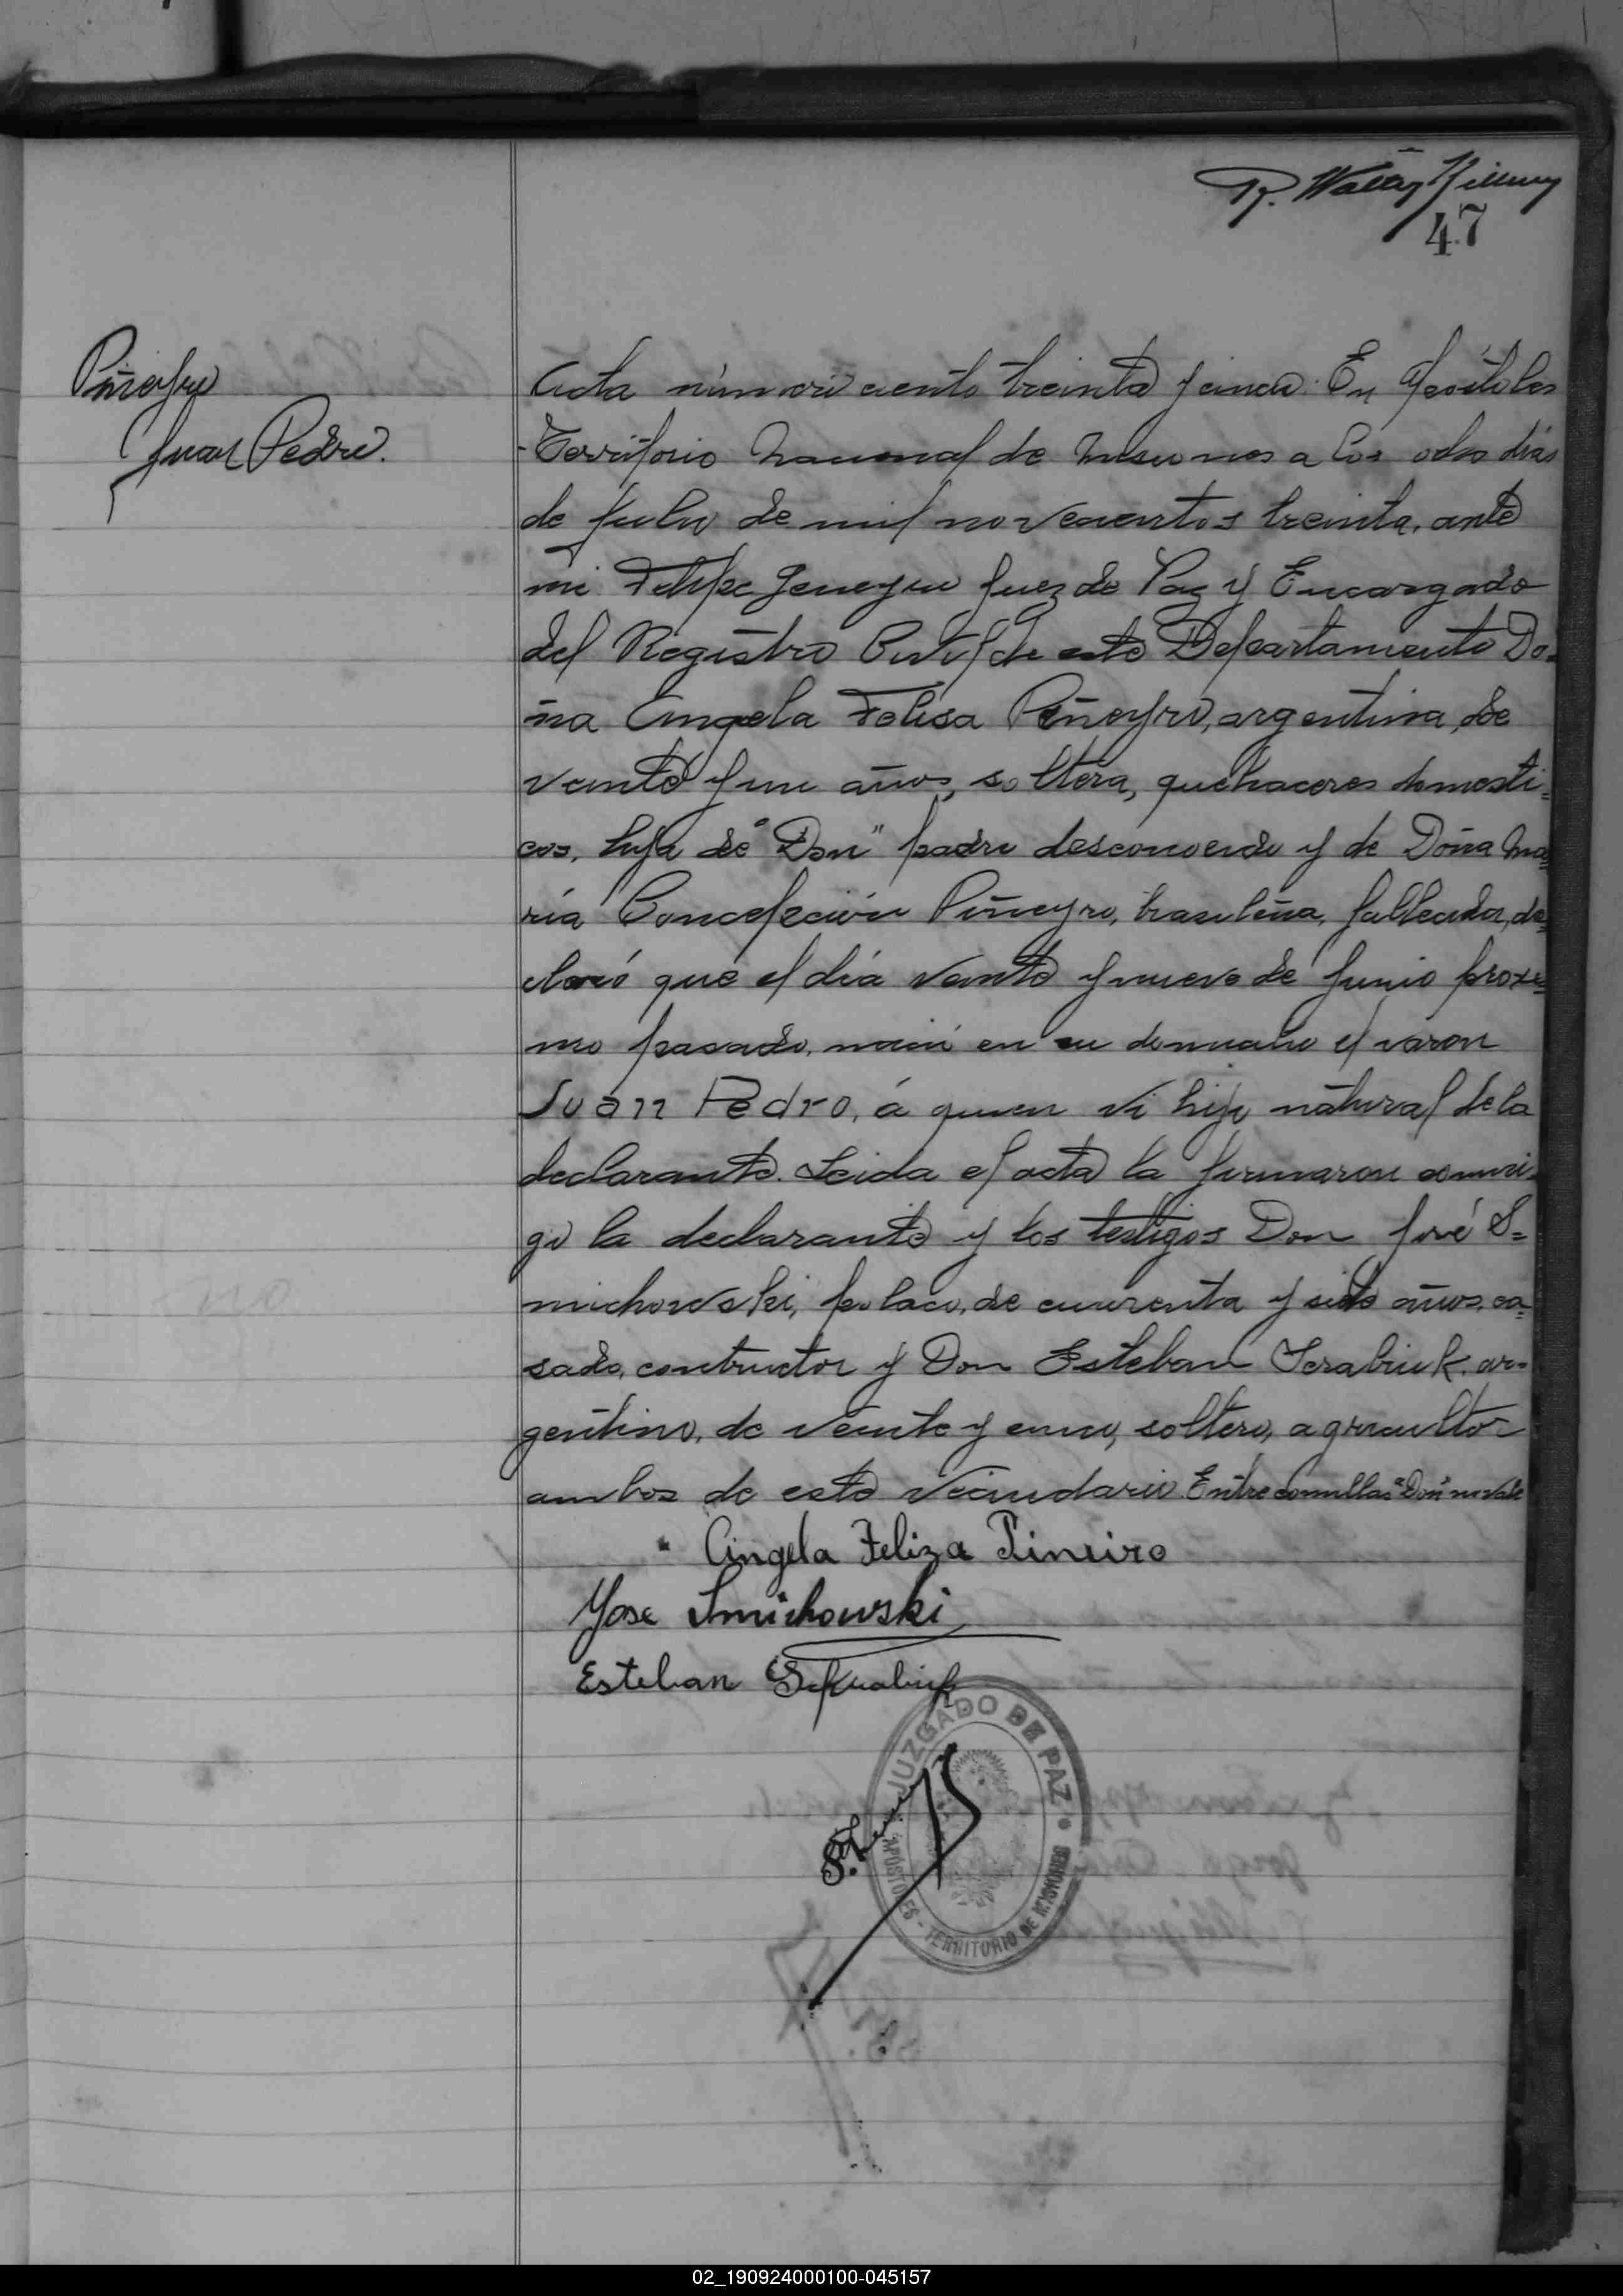 R. Walter
47
Piñeyro
Juan Pedro.
Acta número ciento treinta y cinco. En Apóstoles
Territorio Nacional de Misiones a los ocho días
de Julio de mil novecientos treinta, ante
mi Felipe Juez de Paz y Encargado
del Registro Civil de este Departamento Do=
ña Angela Felisa Piñeyro, argentina, de
veinte y un años, soltera, quehaceres domesti=
cos, hija de "Don" padre desconocido y de Doña Ma=
ría Concepción Piñeyro, brasileña, fallecida, de=
claró que el día veinte y nueve de Junio proxi=
mo pasado, nació en su domicilio el varon
Juan Pedro, á quien vi hijo natural de la
declarante. Leida el acta la firmaron conmi=
go la declarante y los testigos Don José S=
michowski, polaco, de cuarenta y siete años, ca=
sado, contructor y Don Esteban Serabiuk, ar=
gentino, de veinte y cinco, soltero, agricultor
ambos de este vecindario. Entre comillas "Don" no vale
Angela Feliza Pineiro
Yose Smichowski
Esteban
JUZGADO DE PAZ
APOSTOLES - TERRITORIO DE MISIONES
no
02_190924000100-045157